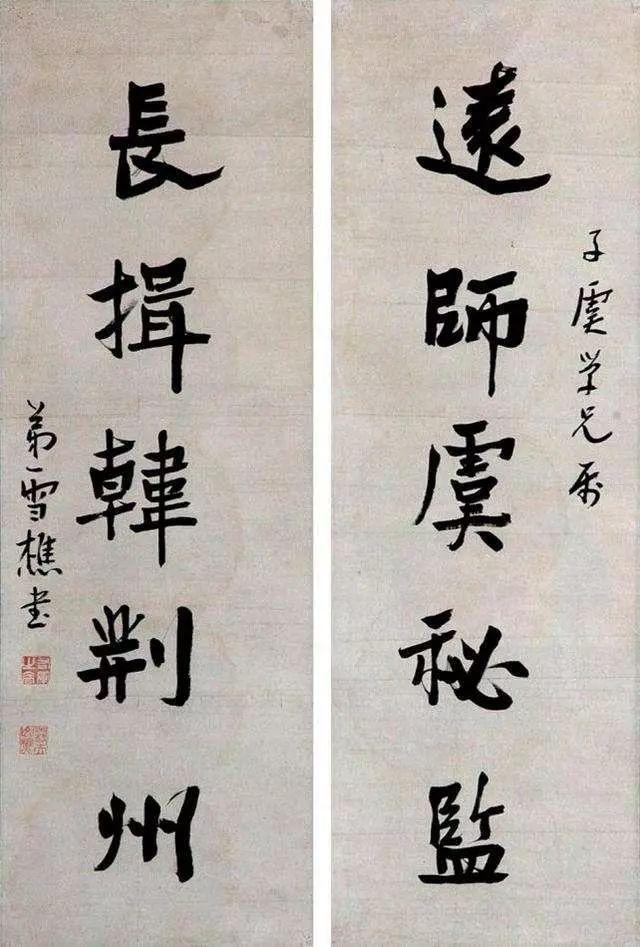 遠師虞秘監
子虞学兄属
長揖韓荆州
弟雪樵书